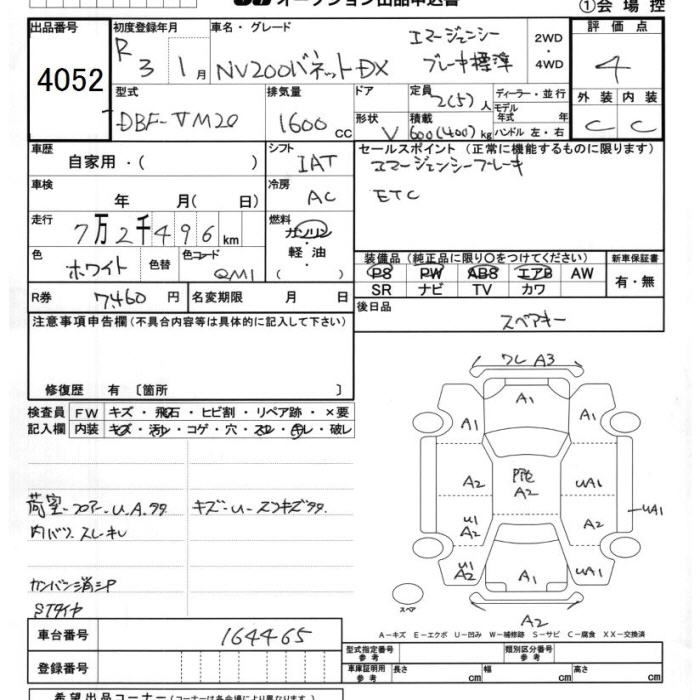 オークション出品申込書
①会場控
出品番号 初度登録年月 車名・グレード 評価点
4052 R 3 1月 NV200バネットDX エマージェンシー ブレーキ標準 2WD・4WD 4
型式 排気量 ドア 定員 ディーラー・並行 外装 内装
DBF-VM20 1600cc 形状 V 2(5)人 積載 600(400)kg モデル年式 年 ハンドル 左・右 C C
車歴 自家用・( ) シフト IAT セールスポイント(正常に機能するものに限ります)
エマージェンシーブレーキ
ETC
車検 年 月( 日) 冷房 AC
走行 7万2千496km 燃料 ガソリン 軽油 ( )
色 ホワイト 色替 色コード QM1
装備品(純正品に限り○をつけてください) 新車保証書
PS PW ABS エアB AW 有・無
SR ナビ TV カワ
R券 7,460円 名変期限 月 日
後日品 スペアキー
注意事項申告欄(不具合内容等は具体的に記入して下さい)
修復歴 有〔箇所 〕
検査員 FW キズ・飛石・ヒビ割・リペア跡・×要
記入欄 内装 キズ・汚レ・コゲ・穴・スレ・切レ・破レ
荷室-フロアー-U.A.タタ キズ-U-スレキズタタ
内バリ スレキレ
カンバン消シP
STタイヤ
ワレ A3
A1
A1 A1
A2 A2 UA1
UA1
U1 A2 A2
U1 A2 A1 UA1
スペア
A2
A-キズ E-エクボ U-凹み W-補修跡 S-サビ C-腐食 XX-交換済
車台番号 164465
型式指定番号 類別区分番号
参考 車庫証明用 長さ cm 幅 cm 高さ cm
登録番号
希望出品コーナー(コーナーは各会場により異なります)